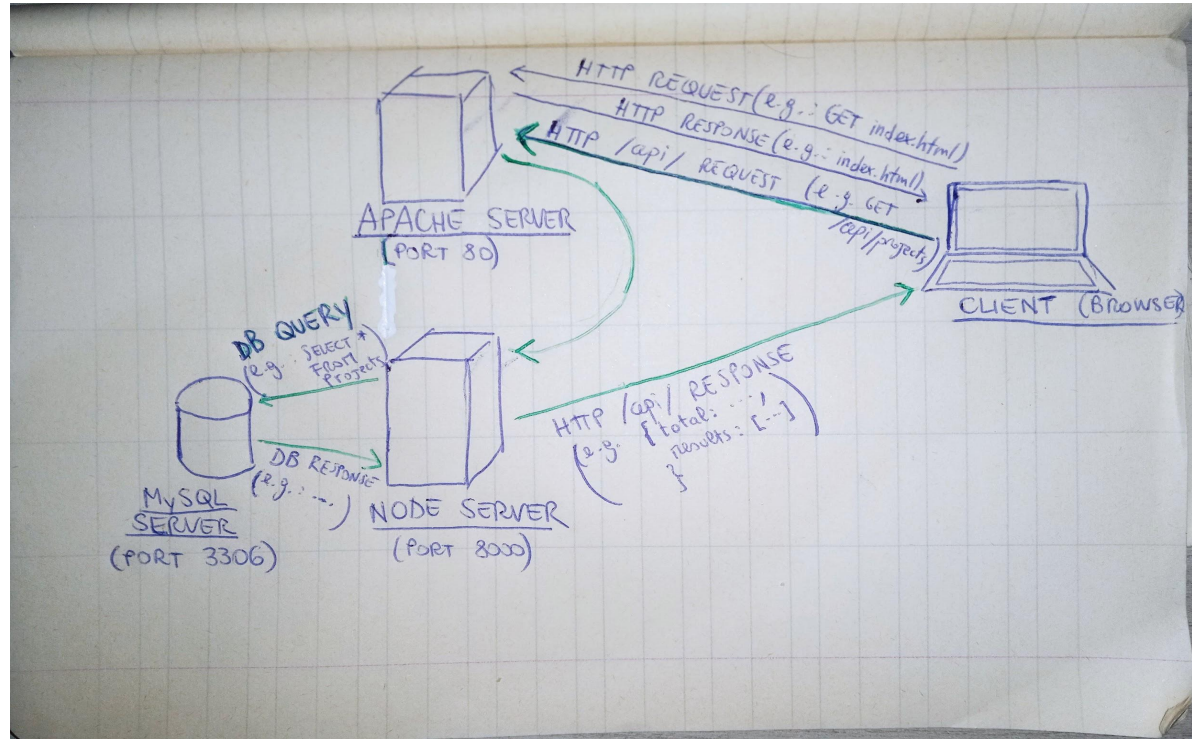 HTTP REQUEST (e.g.: GET index.html)
HTTP RESPONSE (e.g.: index.html)
HTTP /api/ REQUEST (e.g. GET
/api/projects)
APACHE SERVER
(PORT 80)
CLIENT (BROWSER)
DB QUERY
(e.g.: SELECT *
FROM
projects)
HTTP /api/ RESPONSE
(e.g. { total: ...,
results: [...]
} )
DB RESPONSE
(e.g.: ... )
MySQL
SERVER
(PORT 3306)
NODE SERVER
(PORT 8000)